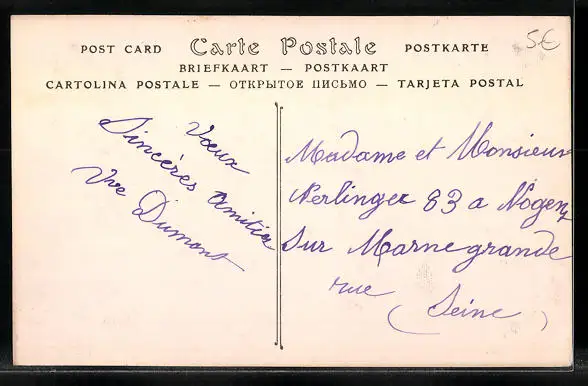 POST CARD Carte Postale POSTKARTE
BRIEFKAART — POSTKAART
CARTOLINA POSTALE — ОТКРЫТОЕ ПИСЬМО — TARJETA POSTAL
5€
Vœux
Sincères amitiés
Vve Dumont
Madame et Monsieur
Nerlinger 83 a Nogent
Sur Marne grande
rue
(Seine)